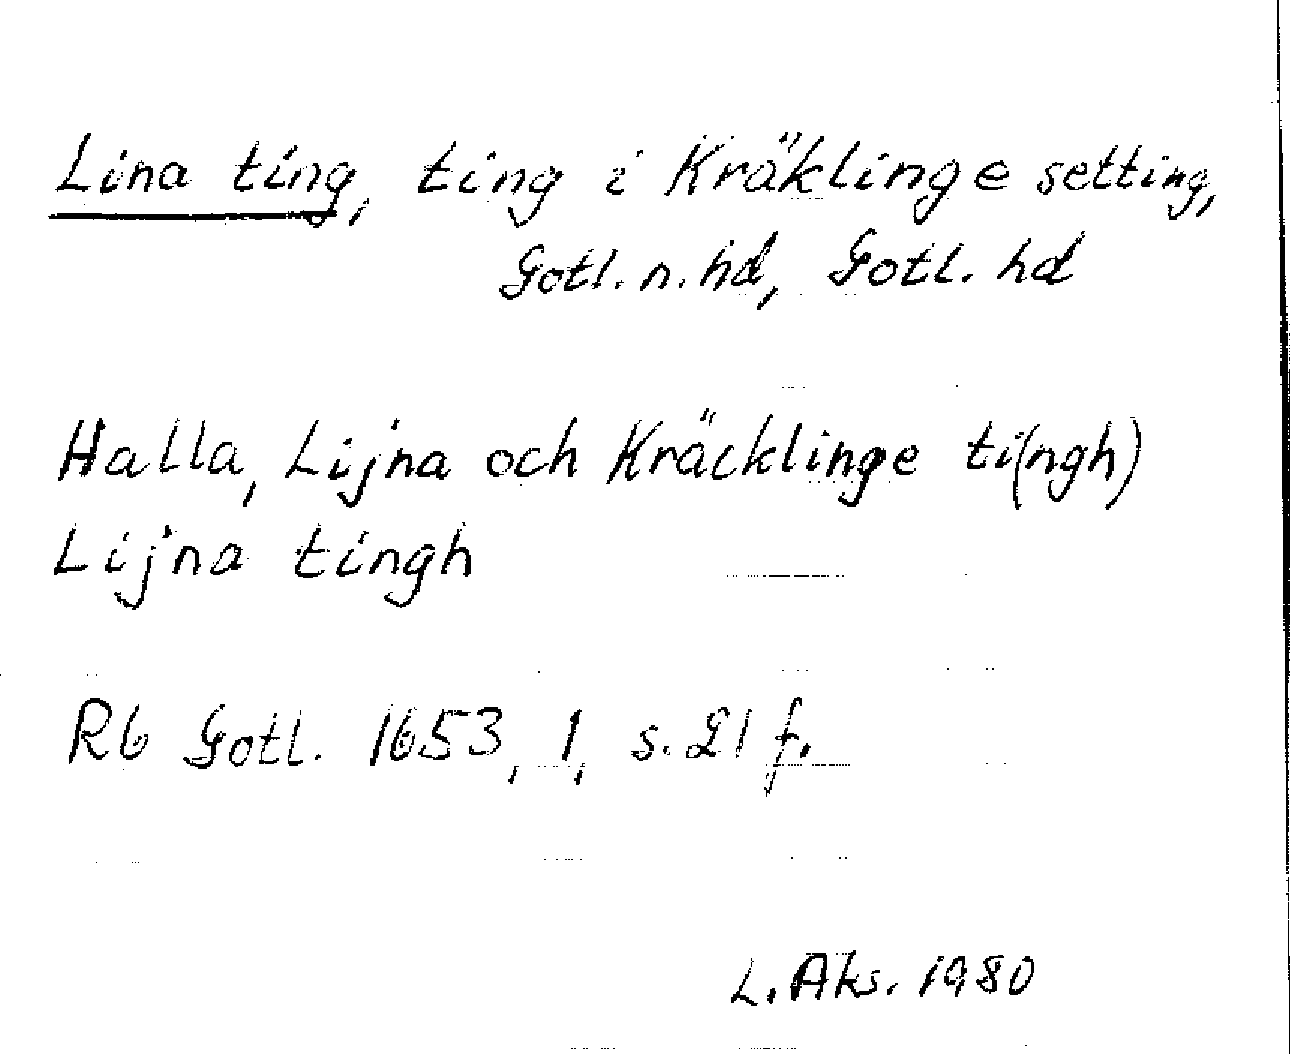 Lina ting, ting i Kräklinge setting,
Gotl. n. hd, Gotl. hd
Halla, Lijna och Kräcklinge ti(ngh)
Lijna tingh
Rb Gotl. 1653, 1, s. 21 f.
L. Aks. 1980